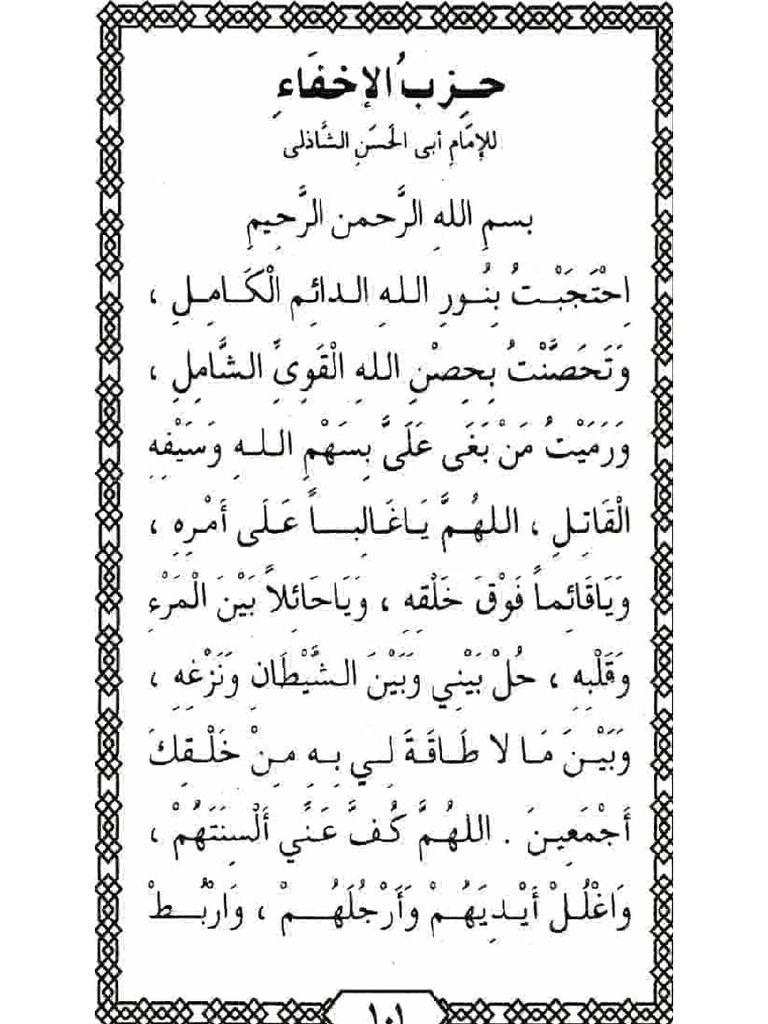 حِزبُ الإخفَاءِ
للإِمَامِ أبى الحَسَنِ الشَّاذلى
بسمِ اللهِ الرَّحمن الرَّحِيمِ
اِحْتَجَبْتُ بِنُورِ اللهِ الدائِمِ الْكَامِلِ ،
وَتَحَصَّنْتُ بِحِصْنِ اللهِ الْقَوِىِّ الشَّامِلِ ،
وَرَمَيْتُ مَنْ بَغَى عَلَىَّ بِسَهْمِ اللهِ وَسَيْفِهِ
الْقَاتِلِ ، اللهُمَّ يَاغَالِباً عَلَى أَمْرِهِ ،
وَيَاقَائِماً فَوْقَ خَلْقِهِ ، وَيَاحَائِلاً بَيْنَ الْمَرْءِ
وَقَلْبِهِ ، حُلْ بَيْنِي وَبَيْنَ الشَّيْطَانِ وَنَزْغِهِ ،
وَبَيْنَ مَا لا طَاقَةَ لِي بِهِ مِنْ خَلْقِكَ
أَجْمَعِينَ . اللهُمَّ كُفَّ عَنِّي أَلْسِنَتَهُمْ ،
وَاغْلُلْ أَيْدِيَهُمْ وَأَرْجُلَهُمْ ، وَارْبُطْ
١٠١